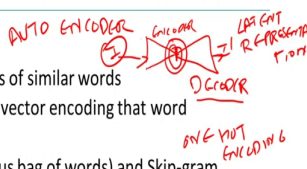 AUTO ENCODER
ENCODER
LATENT
REPRESENTA
TION
I
I'
DECODER
s of similar words
vector encoding that word
ONE HOT
ENCODING
us bag of words) and Skip-gram